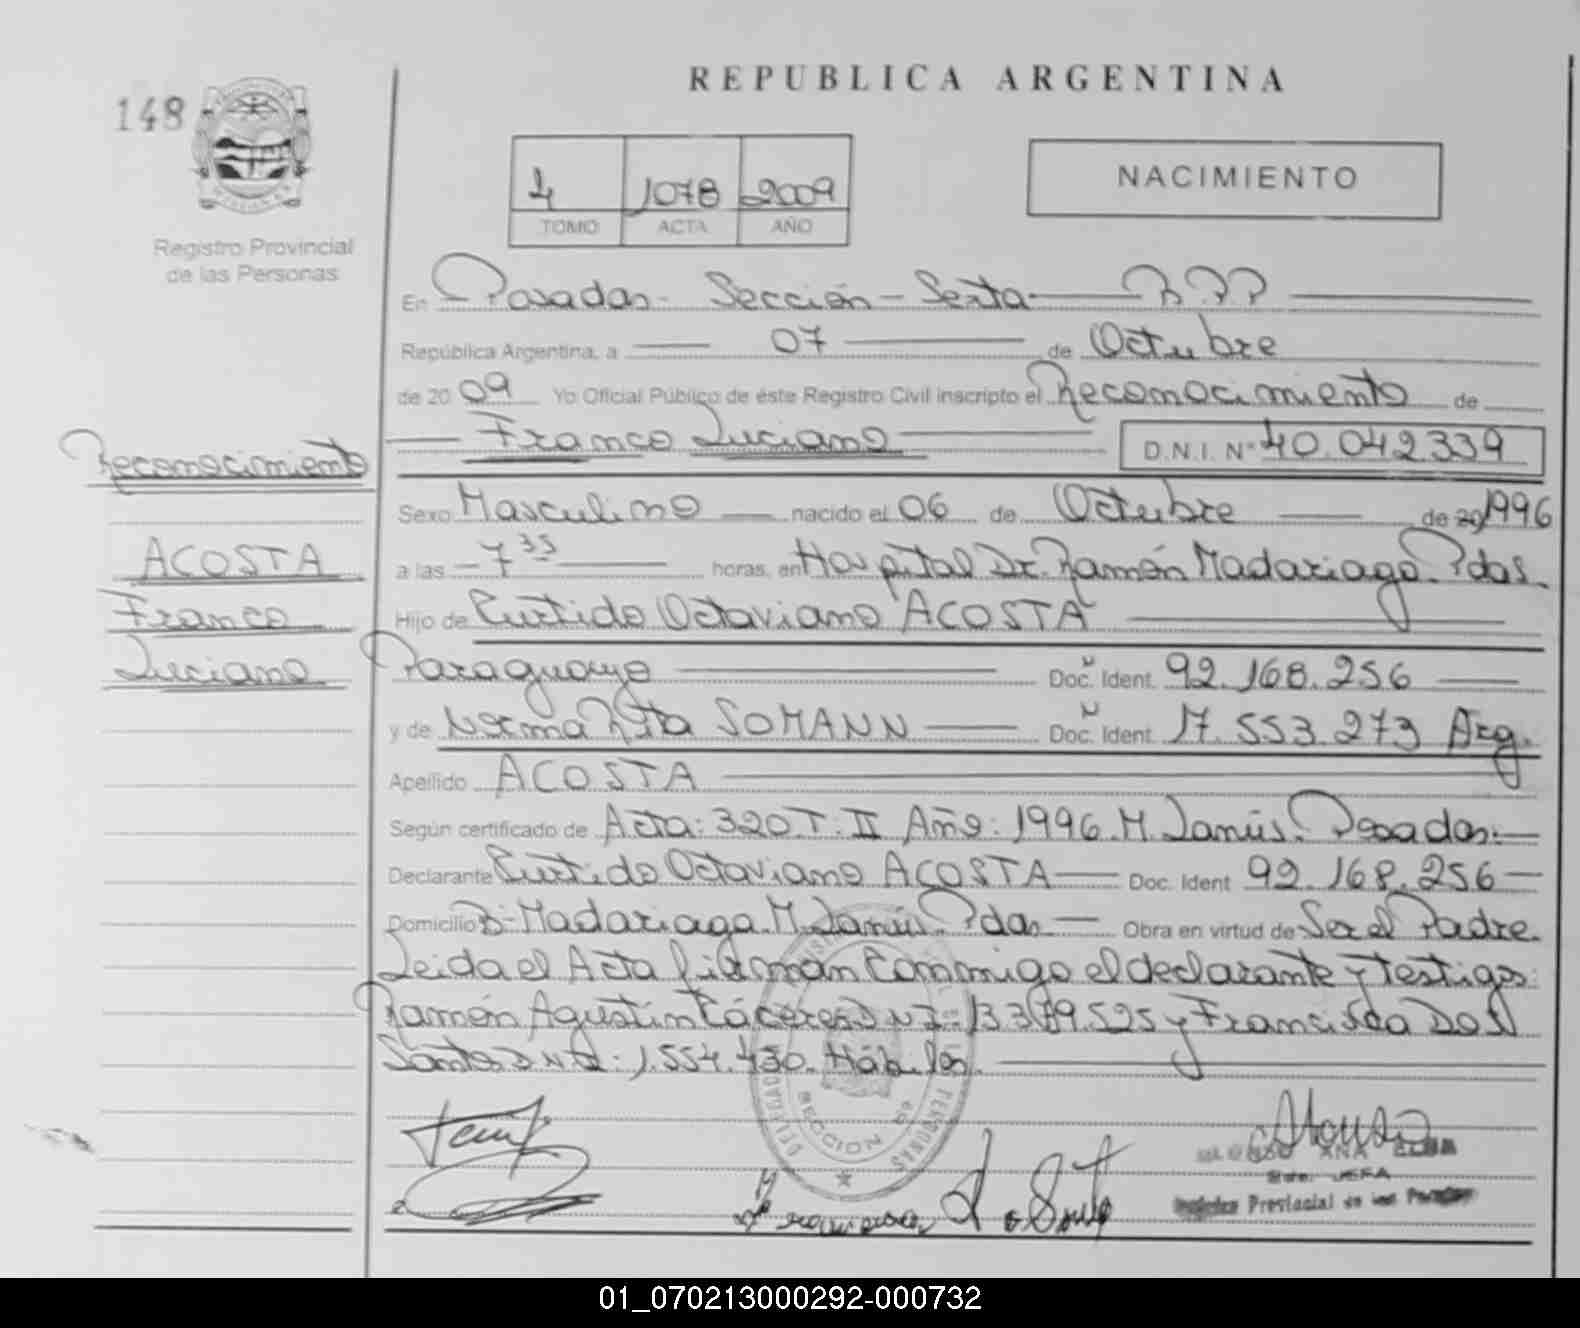 REPUBLICA ARGENTINA
148
4 1078 2009
TOMO ACTA AÑO
NACIMIENTO
Registro Provincial
de las Personas
En Posadas - Sección - Sexta R.P.P
República Argentina, a 07 de Octubre
de 2009 Yo Oficial Público de éste Registro Civil inscripto el Reconocimiento de
Franco Luciano D.N.I. Nº 40.042.339
Reconocimiento
ACOSTA
Franco
Luciano
Sexo Masculino nacido el 06 de Octubre de 20 1996
a las 7 35 horas, en Hospital Dr. Ramón Madariaga. Pdas.
Hijo de Octaviano ACOSTA
Paraguayo Doc. Ident. 92.168.256
y de Norma Rita SOMANN Doc. Ident. 17.553.273 Arg.
Apellido ACOSTA
Según certificado de Acta: 320 T. II Año: 1996. M. Lanús. Posadas.
Declarante Octaviano ACOSTA Doc. Ident 92.168.256
Domicilio Bº Madariaga. M. Lanús. Pdas Obra en virtud de Ser el Padre.
Leida el Acta firman Conmigo el declarante y testigos:
Ramón Agustín Cáceres D.N.I. y Francisca Dos
Santos D.N.I: 1.554.430. Hábiles.
SECCION
PERSONAS
ANA
JEFA
Provincial de las Personas
01_070213000292-000732